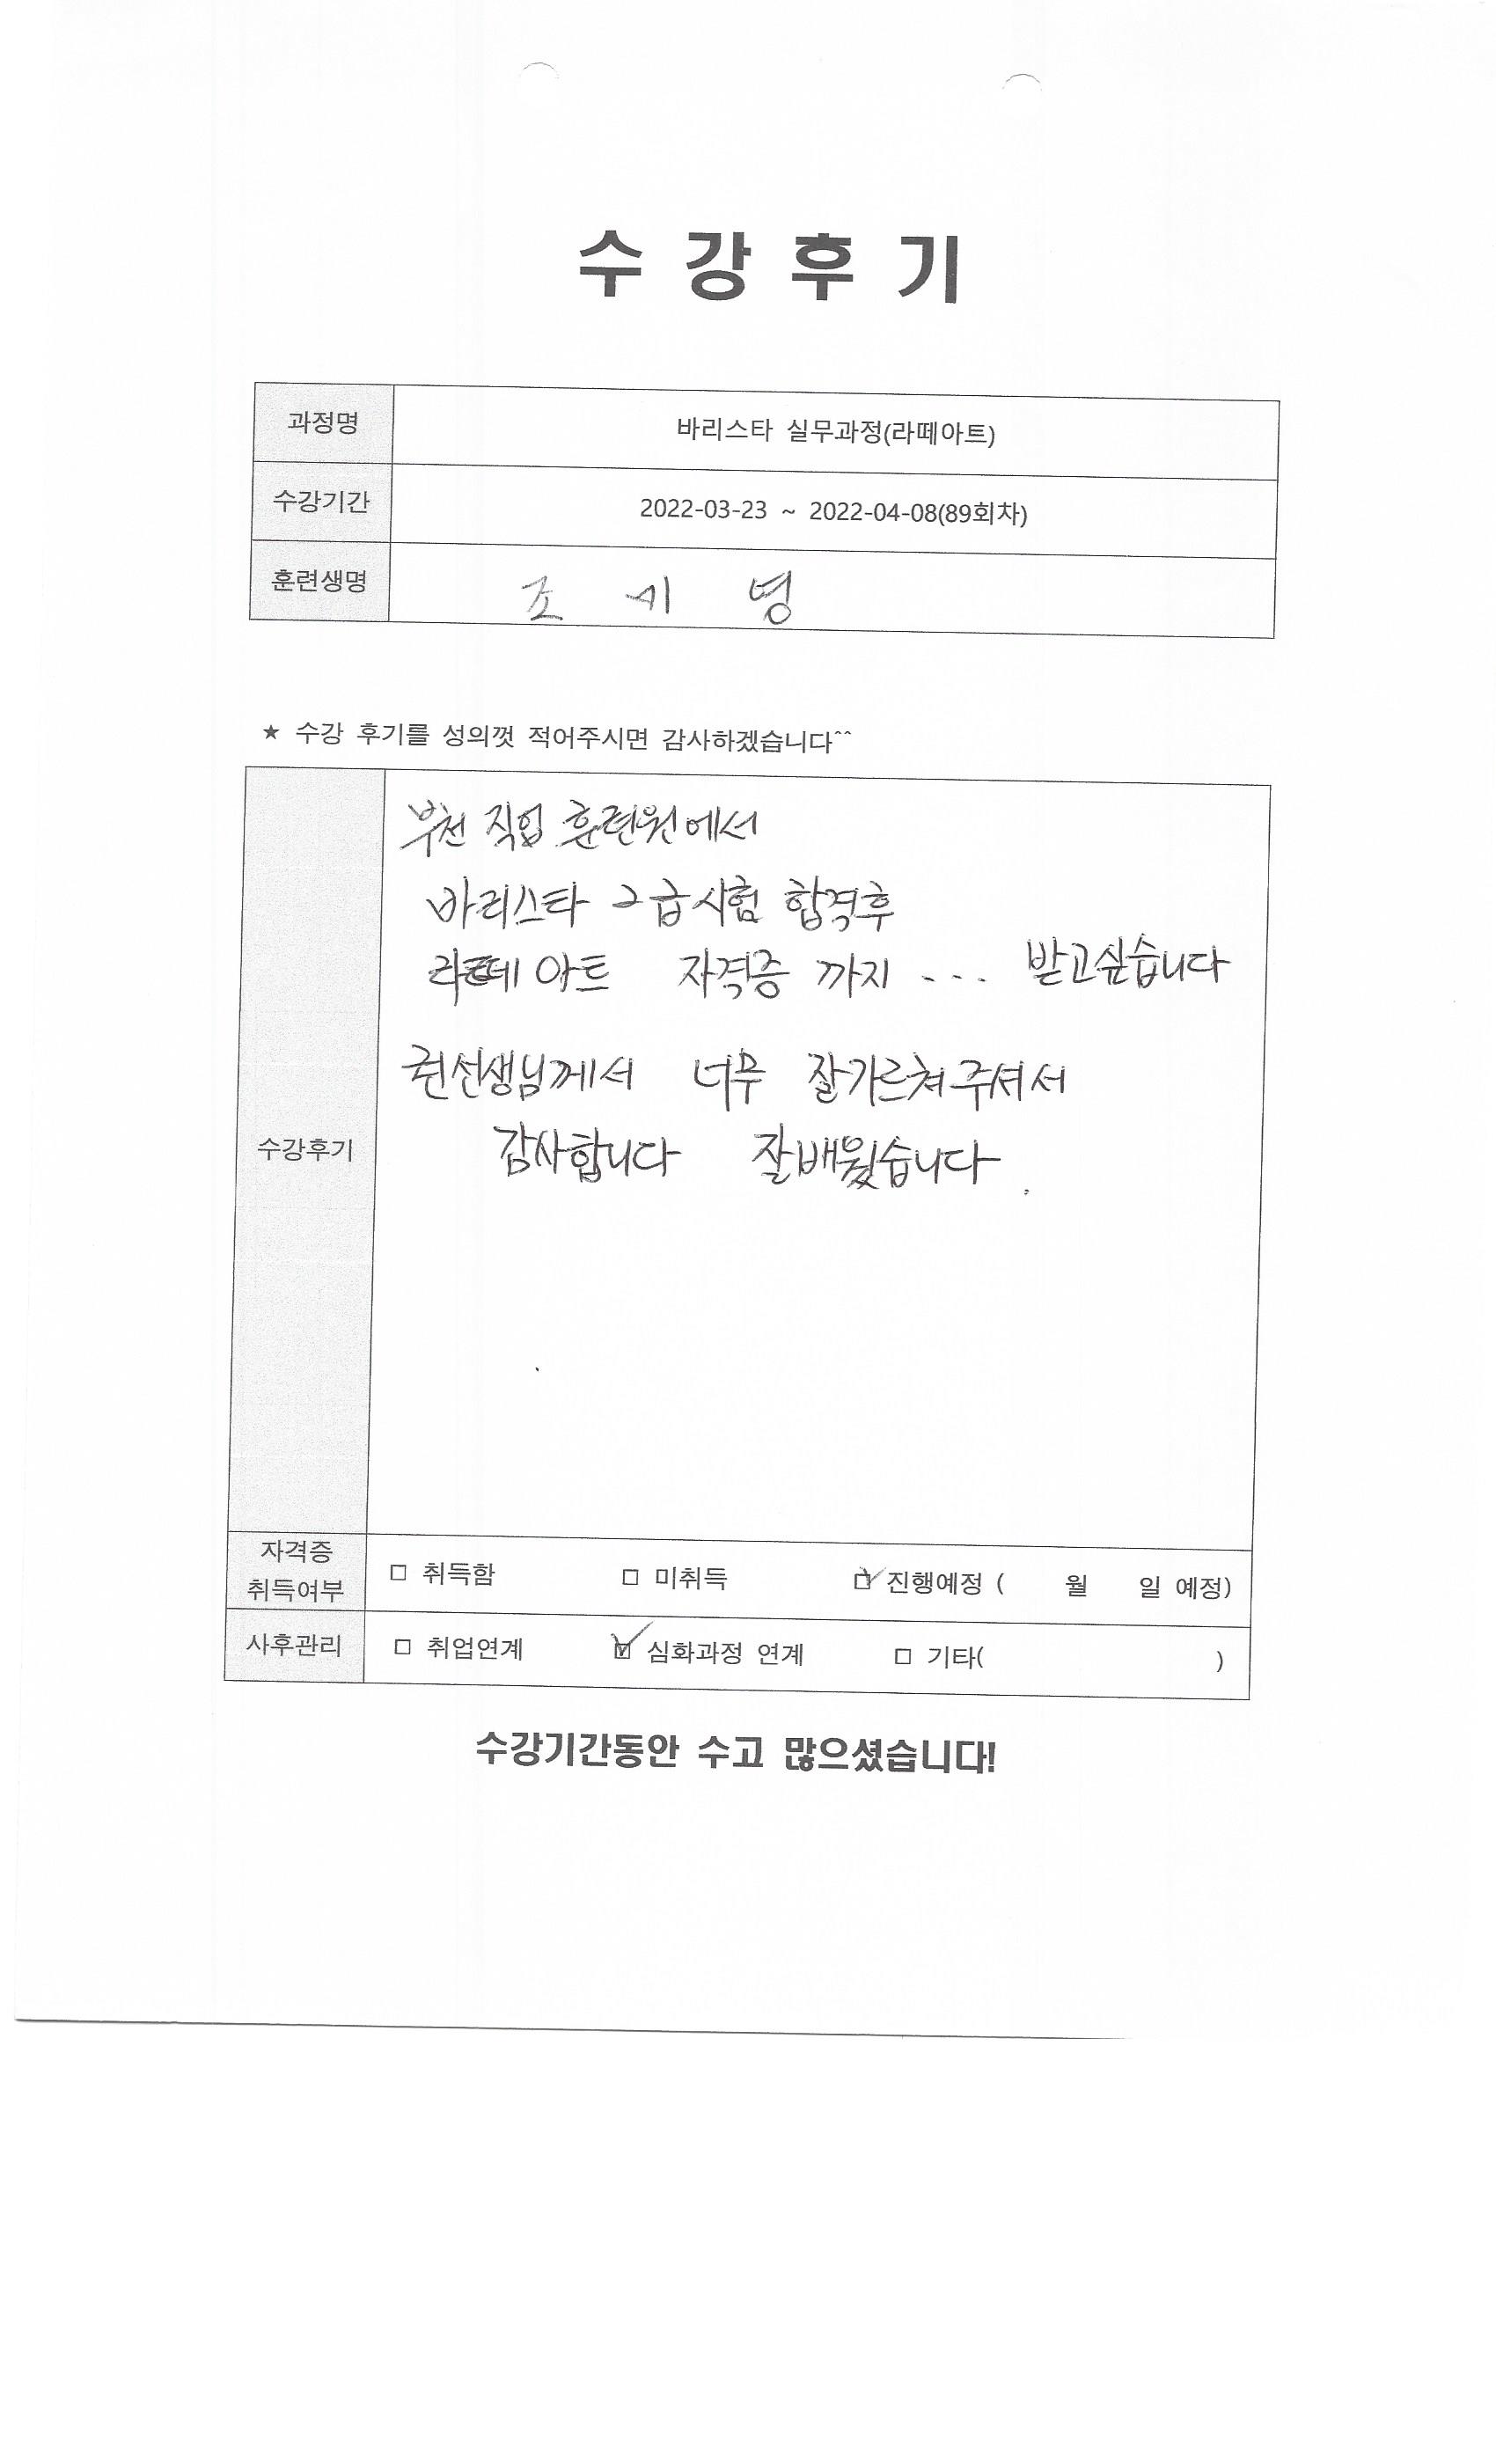 수 강 후 기
과정명 바리스타 실무과정(라떼아트)
수강기간 2022-03-23 ~ 2022-04-08(89회차)
훈련생명 조 영
★ 수강 후기를 성의껏 적어주시면 감사하겠습니다^^
부천 직업 훈련원에서
바리스타 2급시험 합격후
라떼아트 자격증 까지 ... 받고싶습니다
권선생님께서 너무 잘가르쳐주셔서
수강후기
감사합니다 잘배웠습니다.
자격증
취득여부
□ 취득함 □ 미취득 ☑ 진행예정 ( 월 일 예정)
사후관리 □ 취업연계 ☑ 심화과정 연계 □ 기타( )
수강기간동안 수고 많으셨습니다!